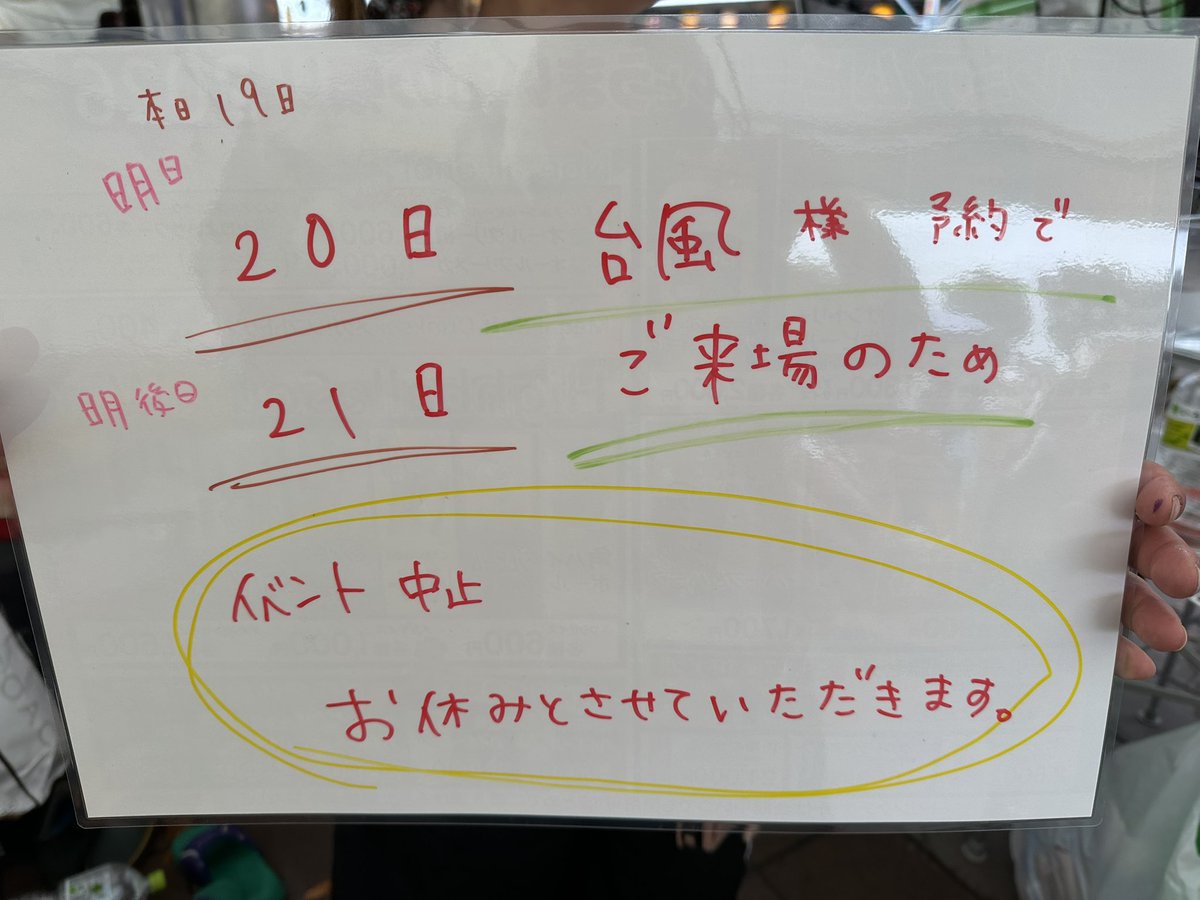 本日19日
明日
20日 台風様 予約で
明後日 21日 ご来場のため
イベント 中止
お休みとさせていただきます。